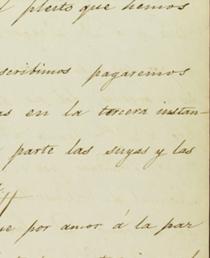 pleito que hemos
scribimos pagaremos
as en la tercera instan-
parte las suyas y las
ue por amor á la paz